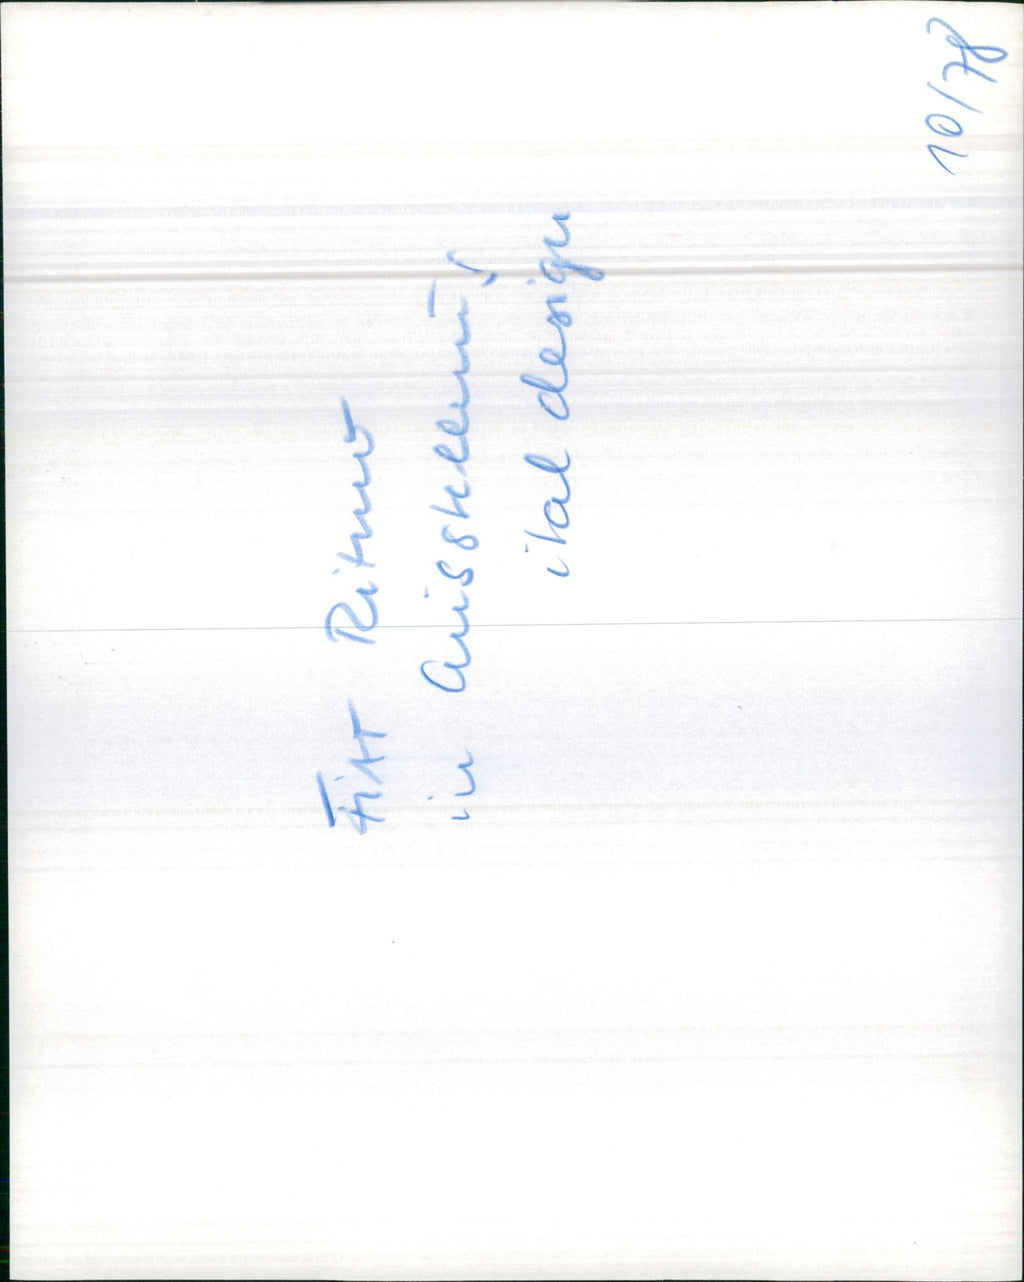 10/78
FiAT Ritmo
in Ausstellung
ital design